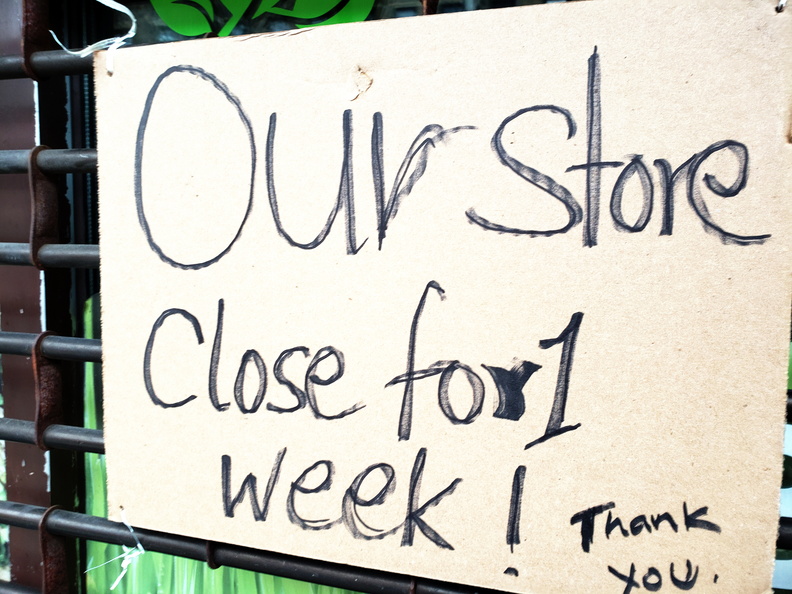 Our Store
Close for 1
week !
Thank
you.